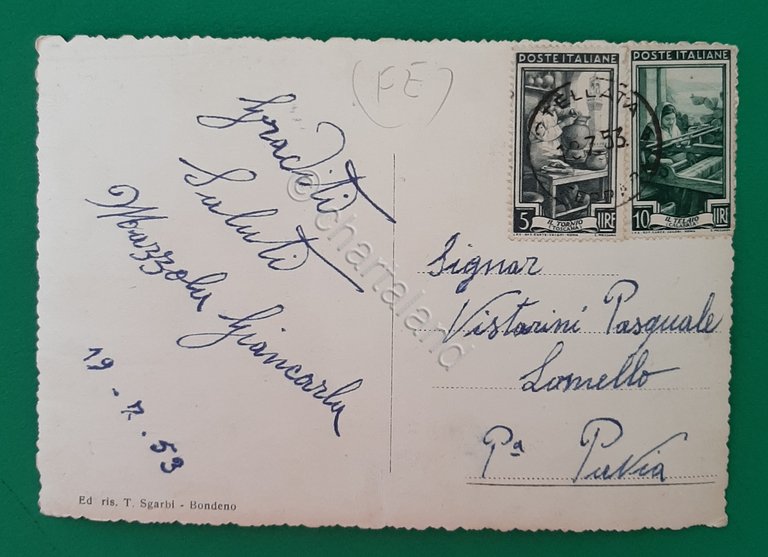 (FE)
POSTE ITALIANE
POSTE ITALIANE
OSTELLATA
7.53
5 IL TORNIO LIRE
(TOSCANA)
10 IL TELAIO LIRE
(CALABRIA)
Graditi
Saluti
Mazzola Giancarla
19-7.53
Signor
Vistarini Pasquale
Lomello
Pa Pavia
Ed ris. T. Sgarbi - Bondeno
©chartaland